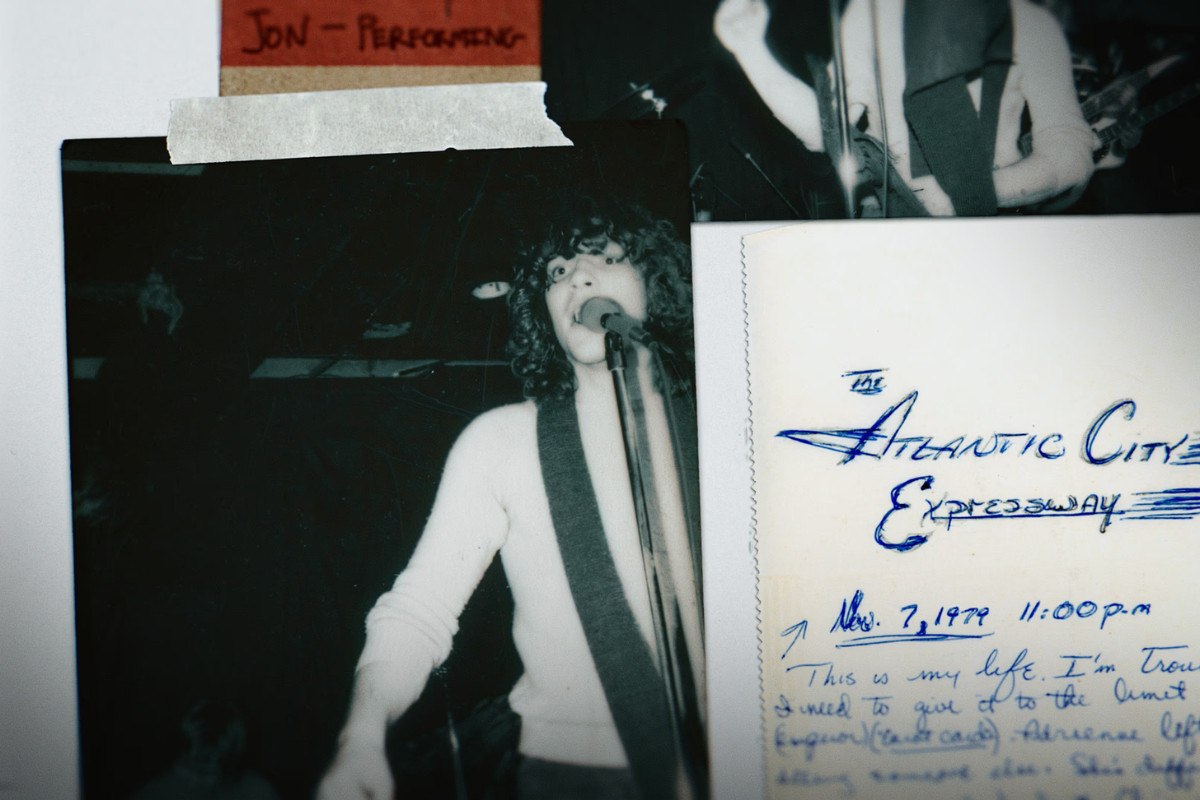 JON - PERFORMING
The
ATLANTIC CITY
EXPRESSWAY
Nov. 7, 1979 11:00 p.m
This is my life. I'm
I need to give it to the limit
Emperor) (tarot card). Adrienne left
someone else. She's